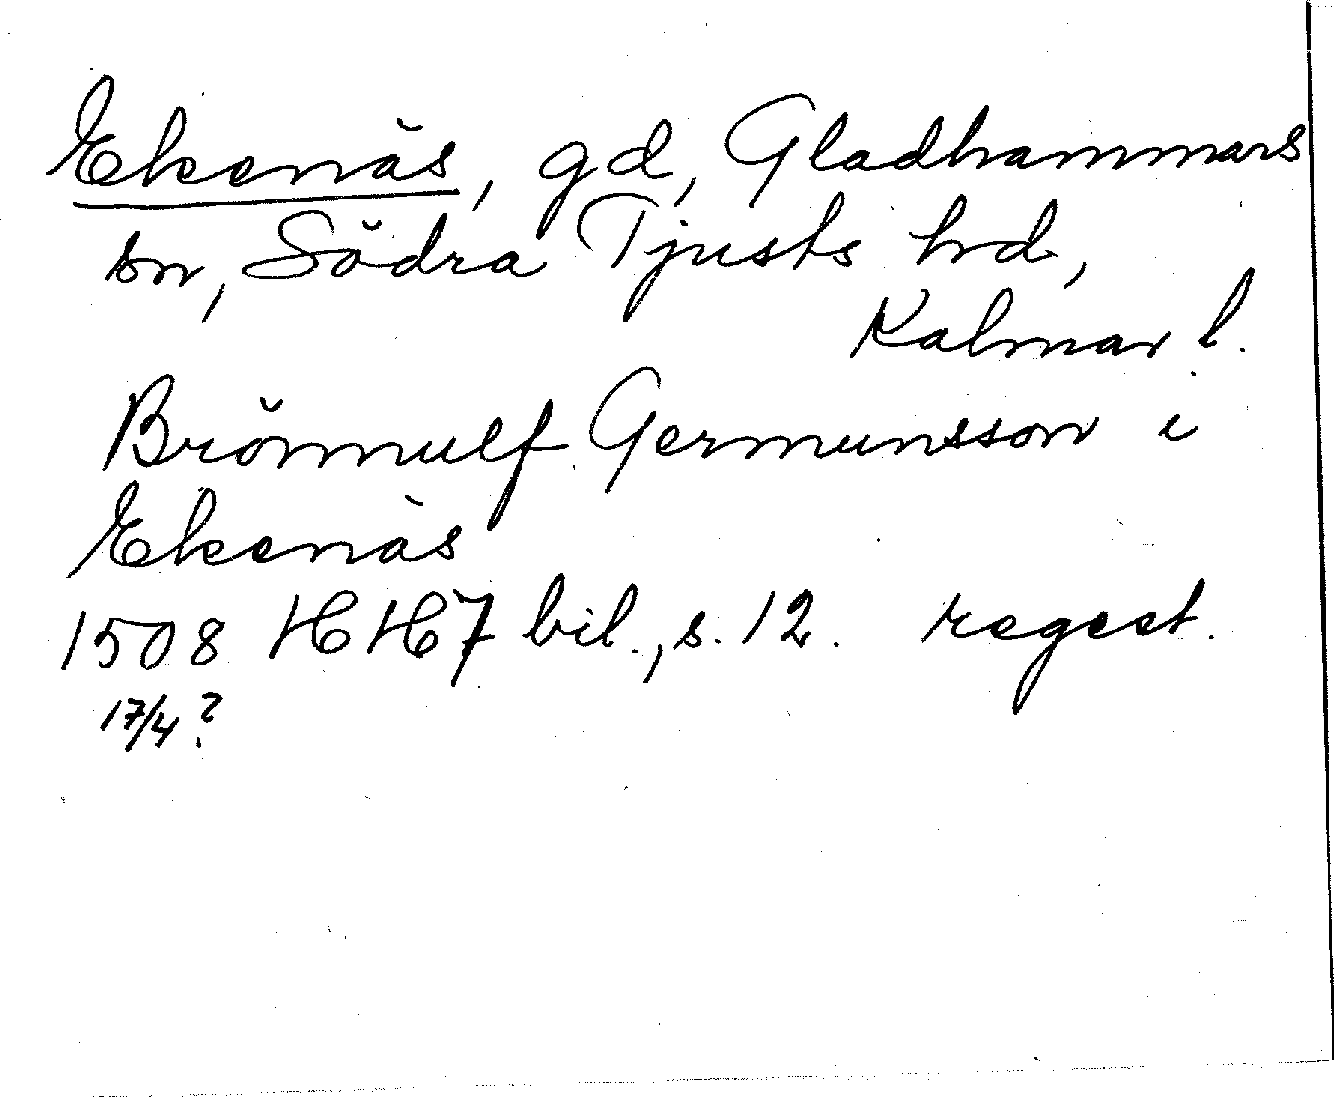 Ekenäs, gd, Gladhammars
sn, Södra Tjusts hd,
Kalmar l.
Brömmulf Germunsson i
Ekenäs
1508 HH7 bil., s. 12. regest.
17/4?